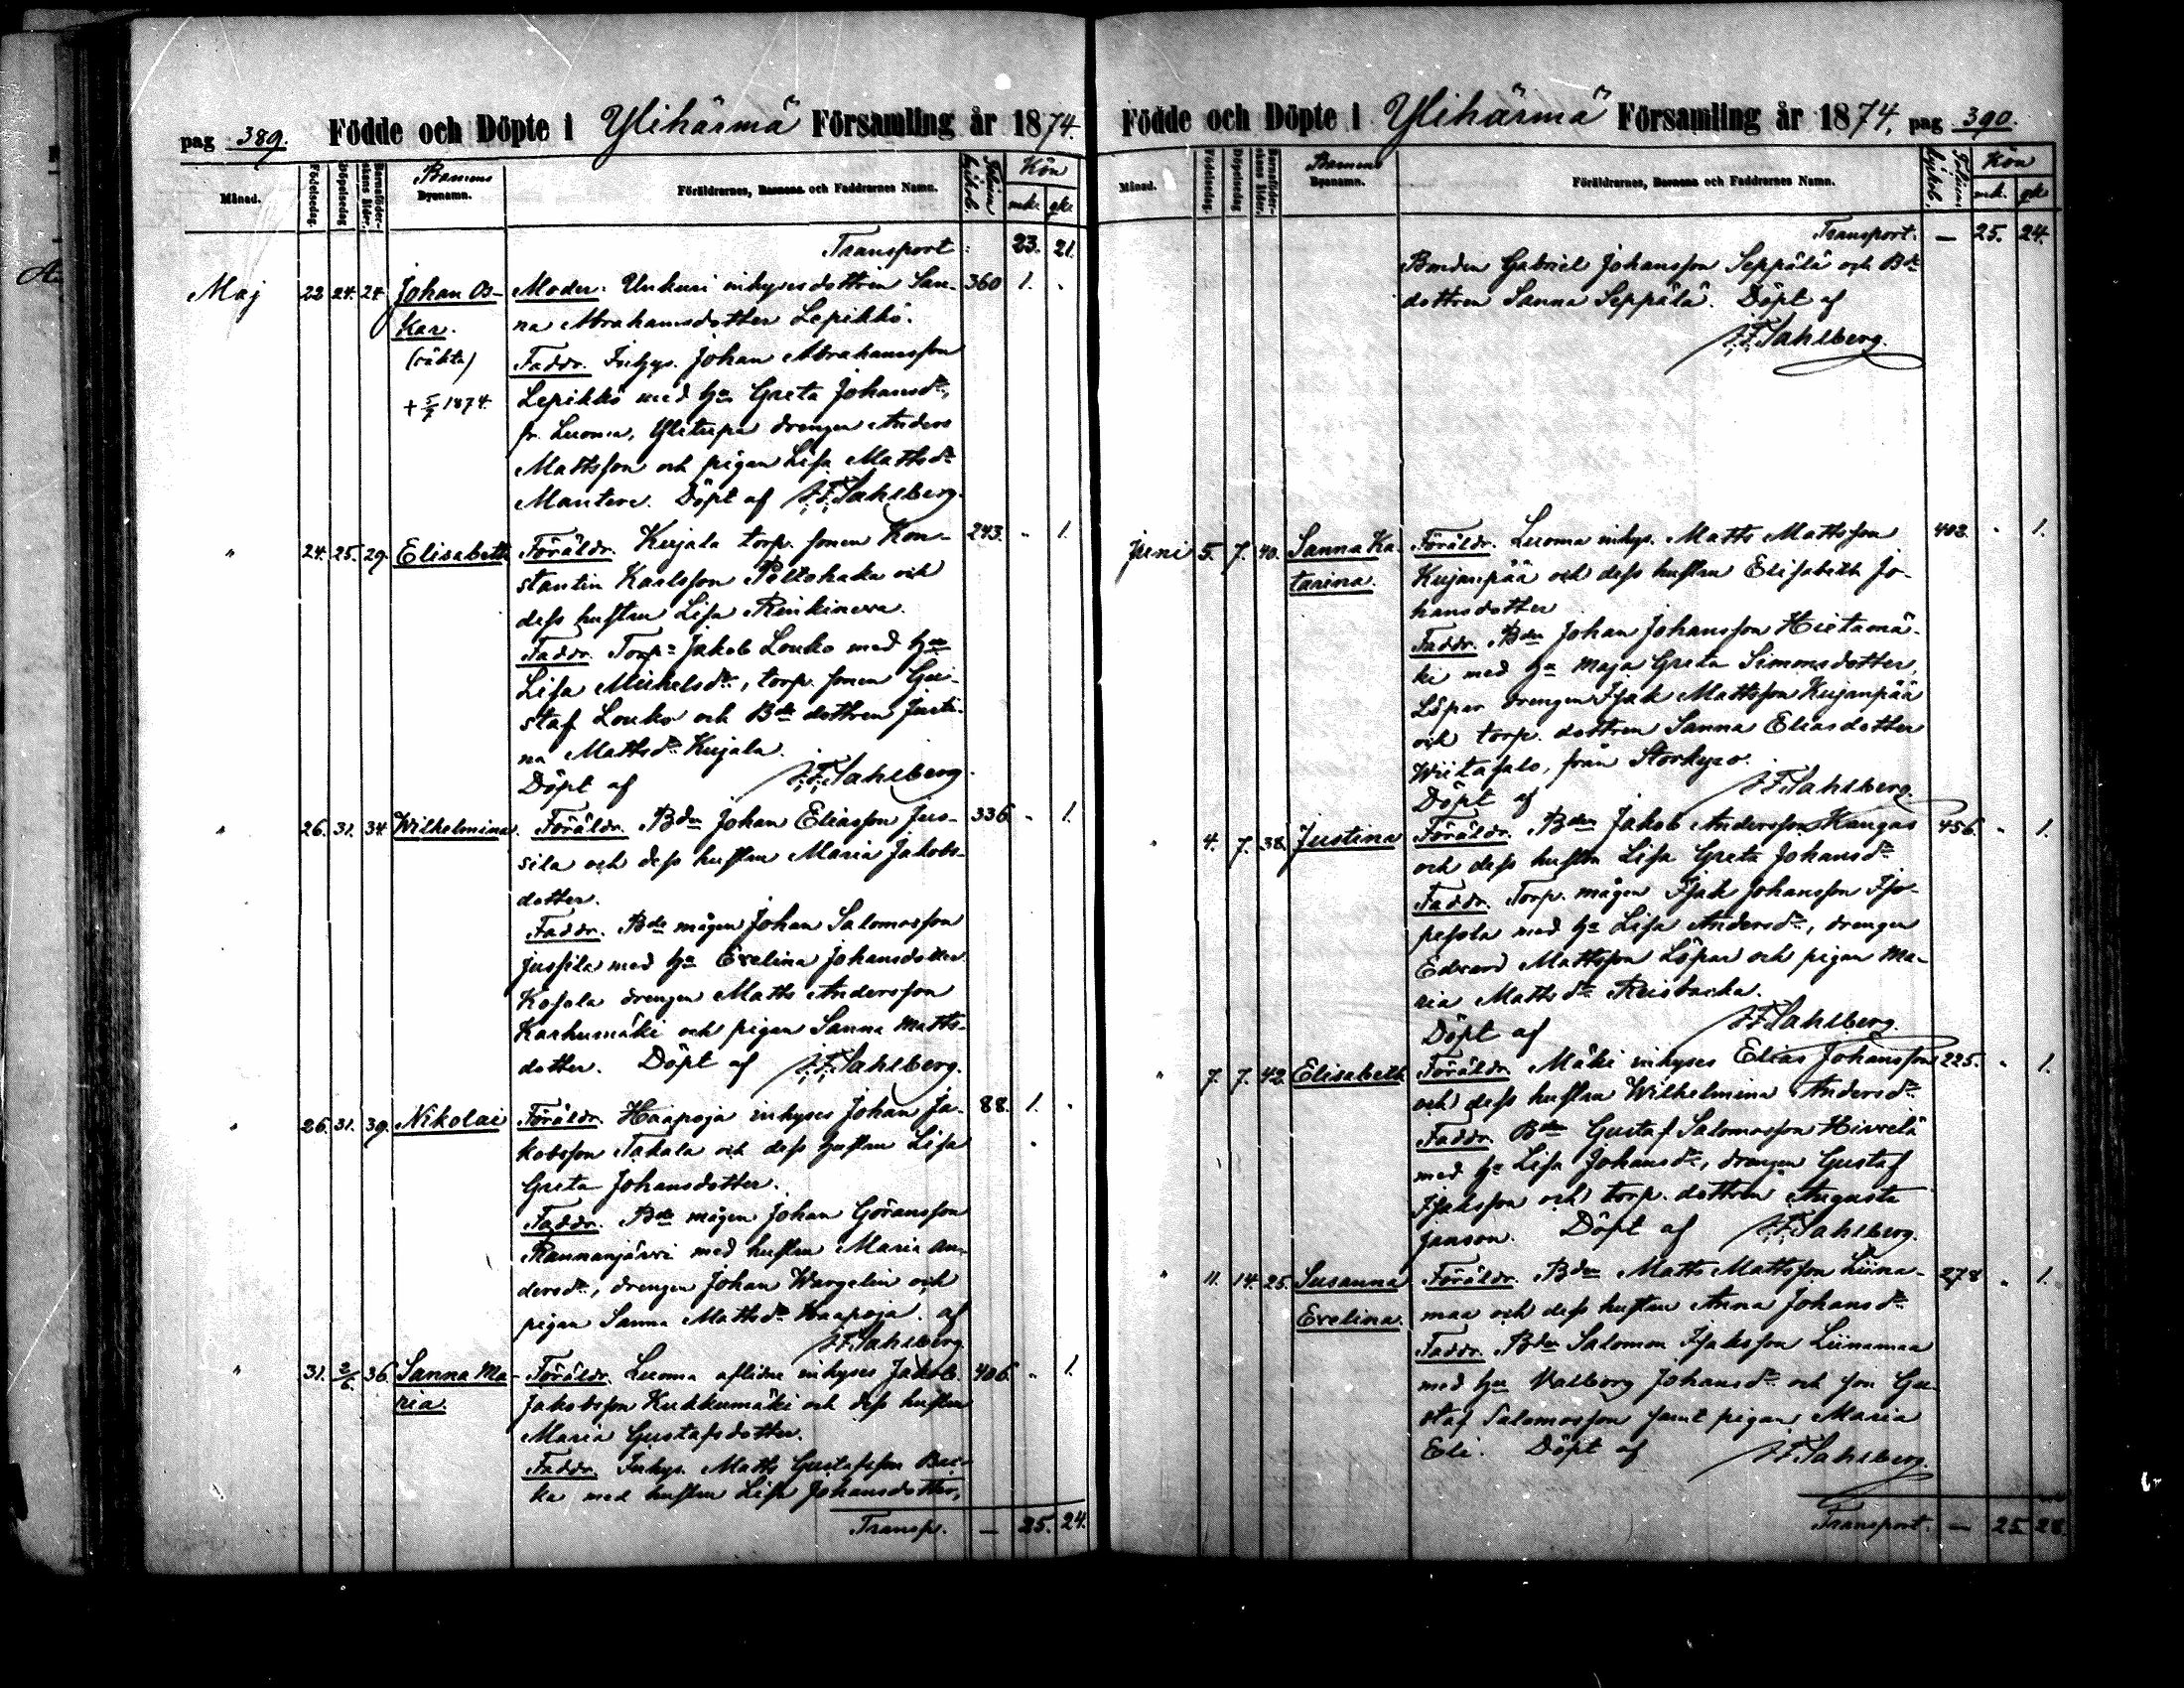 pag 389. Födde och Döpte i Ylihärmä Församling år 1874.
Månad. Födelsedag. Döpelsedag Barnaföderskans ålder. Barnens Bynamn. Föräldrarnes, Barnens och Faddrarnes Namn. Kön
mk. qk.
Transport: 23. 21.
Maj 22 24. 24. Johan Os- Moder: Unkuri inhysesdottren San- 360 1.
kar. na Abrahamsdotter Lepikkö.
(oäkta) Faddr. Inhys. Johan Abrahamsson
+ 5/7 1874. Lepikkö med hu Greta Johansdr,
fr. Luoma, Ylitupa drengen Anders
Mattsson och pigan Lisa Mattsdr
Mantere. Döpt af J.F. Sahlberg.
" 24. 25. 29. Elisabeth Föräldr. Kujala torp. sonen Kon- 243. " 1.
stantin Kaalsson Peltohaka och
dess hustru Lisa Renkineva.
Faddr. Torp= Jakob Louko med hu
Lisa Michelsdr, torp. sonen Gu-
staf Louko och Bde dottren Justi-
na Mattsdr Kujala.
Döpt af J.F. Sahlberg.
" 26. 31. 34 Wilhelmina. Föräldr. Bden Johan Eliasson Jus- 336 " 1.
sila och dess hustru Maria Jakobs-
dotter.
Faddr. Bde mågen Johan Salomosson
Jussila med hu Evelina Johansdotter
Kosola drengen Matts Andersson
Karhumäki och pigan Sanna Matts-
dotter. Döpt af J.F. Sahlberg.
" 26. 31. 39. Nikolai Föräldr. Haapoja inhyses Johan Ja- 88. 1.
kobsson Takala och dess hustru Lisa
Greta Johansdotter.
Faddr. Bde mågen Johan Göransson
Rannanjärvi med hustru Maria An-
dersdr, drengen Johan Wargelin och
pigan Sanna Mattsdr Haapoja. af
J.F. Sahlberg
" 31. 2/6. 36. Sanna Ma- Föräldr. Luoma aflidne inhyses Jakob 406. " 1.
ria. Jakobsson Kukkumäki och dess hustru
Maria Gustafsdotter.
Faddr. Inhys. Matts Gustafsson
ka med hustru Lisa Johansdotter,
Transp. — 25. 24.
Födde och Döpte i Ylihärmä Församling år 1874, pag 390.
Månad. Födelsedag. Döpelsedag Barnaföderskans ålder. Barnens Bynamn. Föräldrarnes, Barnens och Faddrarnes Namn. Kön
mk. qk
Transport. — 25. 24.
Bonden Gabriel Johansson Seppälä och Bde
dottren Sanna Seppälä. Döpt af
J.F. Sahlberg.
Juni 5. 7. 40. Sanna Ka- Föräldr. Luoma inhys. Matts Mattsson 402. " 1.
tarina. Kujanpää och dess hustru Elisabeth Jo-
hansdotter
Faddr. Bden Johan Johansson Hietamä-
ki med hu Maja Greta Simonsdotter,
Löpar drengen Isak Mattsson Kujanpää
och torp. dottren Sanna Eliasdotter
Wiitasalo, från Storkyro.
Döpt af J.F. Sahlberg.
" 4. 7. 38. Justina Föräldr. Bden Jakob Andersson Kangas 456. " 1.
och dess hustru Lisa Greta Johansdr
Faddr. Torp. mågen Isak Johansson Iso-
pesola med hu Lisa Andersdr, drengen
Edvard Mattsson Löpar och pigan Ma-
ria Mattsdr Reisbacka.
Döpt af J.F. Sahlberg.
" 7. 7. 42. Elisabeth Föräldr. Mäki inhyses Elias Johansson 225. " 1.
och dess hustru Wilhelmina Andersdr.
Faddr. Bden Gustaf Salomosson Hirvelä
med hu Lisa Johansdr, drengen Gustaf
Isaksson och torp. dottren Augusta
Janson. Döpt af J.F. Sahlberg.
" 11. 14. 25. Susanna Föräldr. Bden Matts Mattsson Liina- 278 " 1.
Evelina. maa och dess hustru Anna Johansdr
Faddr. Bden Salomon Isaksson Liinamaa
med hu Walborg Johansdr och son Gu-
staf Salomosson samt pigan Maria
Eli. Döpt af J.F. Sahlberg.
Transport. — 25. 28.